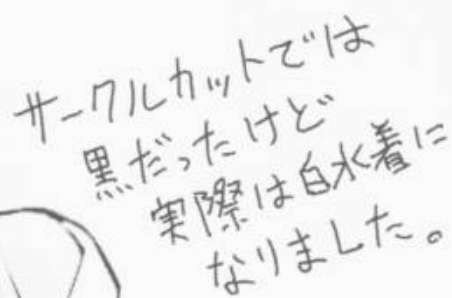 サークルカットでは
黒だったけど
実際は白水着に
なりました。